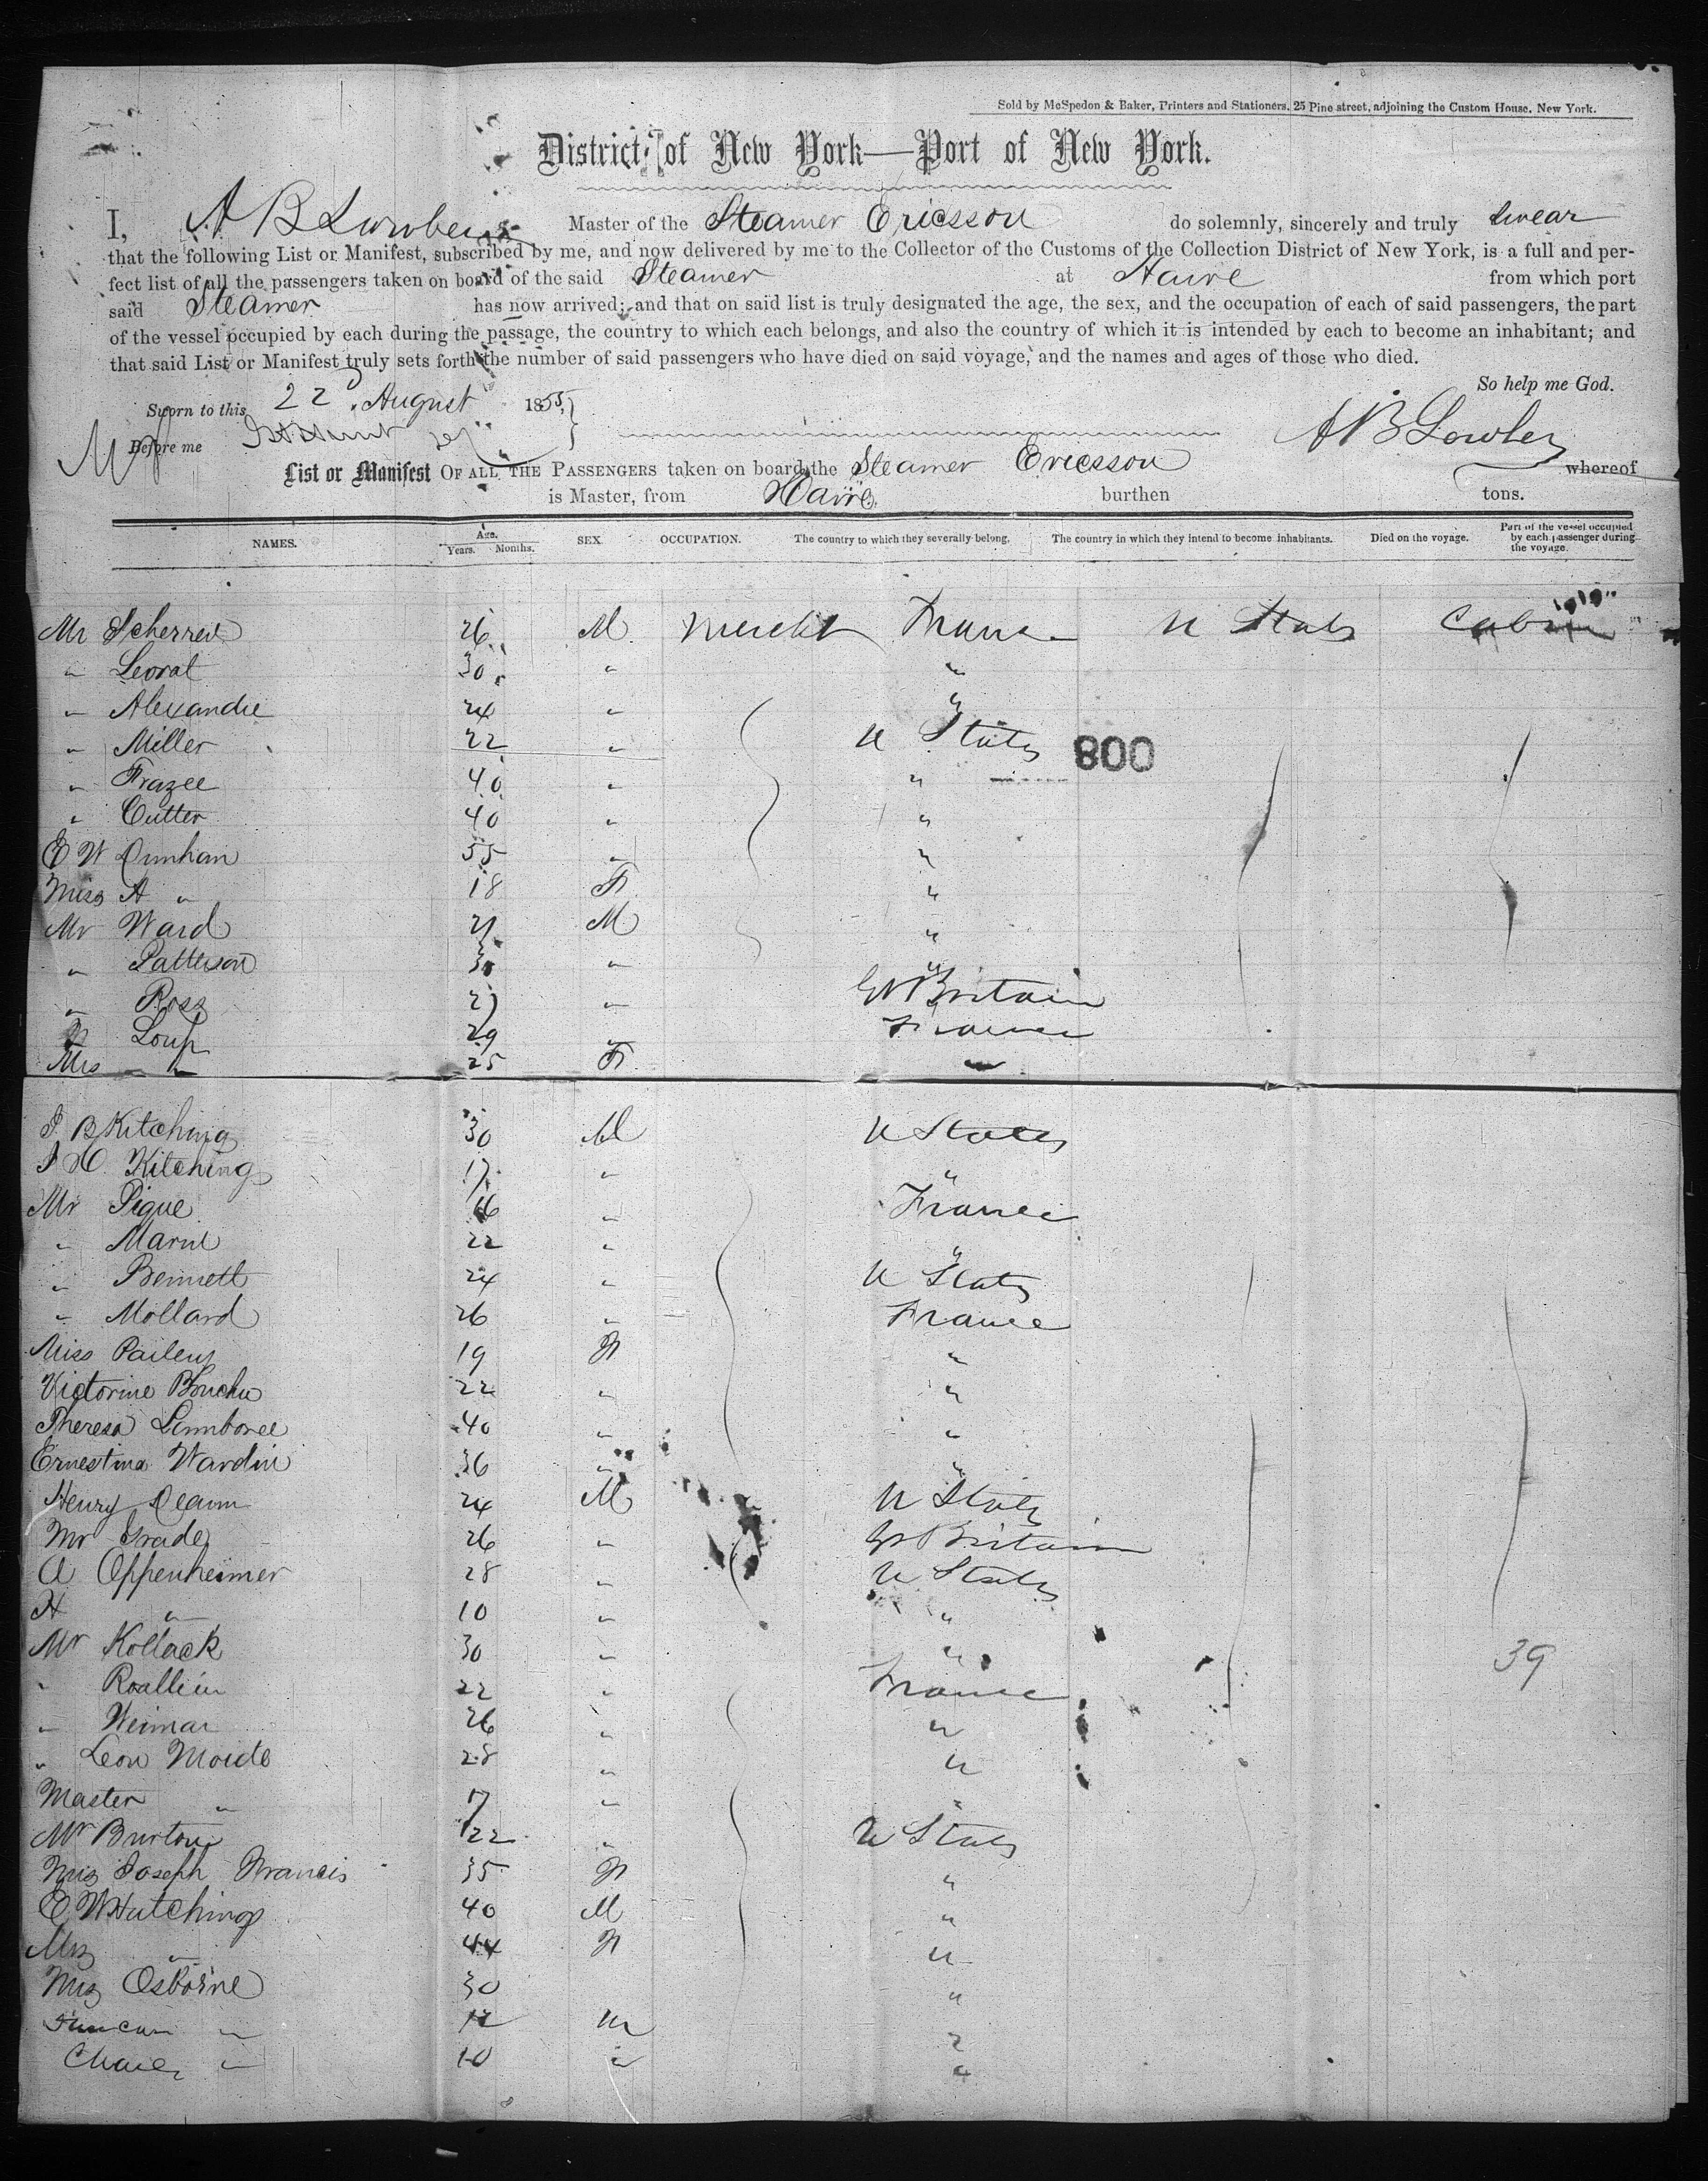 Sold by McSpedon & Baker, Printers and Stationers, 25 Pine street, adjoining the Custom House, New York.
District of New York—Port of New York.
I, A B Lowber Master of the Steamer Ericsson do solemnly, sincerely and truly swear
that the following List or Manifest, subscribed by me, and now delivered by me to the Collector of the Customs of the Collection District of New York, is a full and per-
fect list of all the passengers taken on board of the said Steamer at Havre from which port
said Steamer has now arrived; and that on said list is truly designated the age, the sex, and the occupation of each of said passengers, the part
of the vessel occupied by each during the passage, the country to which each belongs, and also the country of which it is intended by each to become an inhabitant; and
that said List or Manifest truly sets forth the number of said passengers who have died on said voyage, and the names and ages of those who died.
So help me God.
Sworn to this 22d August 1855,
Before me
A B Lowber
List or Manifest OF ALL THE PASSENGERS taken on board the Steamer Ericsson whereof
is Master, from Havre, burthen tons.
NAMES. Age. Years. Months. SEX. OCCUPATION. The country to which they severally belong. The country in which they intend to become inhabitants. Died on the voyage. Part of the vessel occupied by each passenger during the voyage.
Mr 26 M. Mercht France U States Cabin
" Leorat 30 " "
" Alexandre 24 " "
" Miller 22 " U States
800
" Frazee 40 " "
" Cutter 40 " "
E W Dunham 55 " "
Miss A " 18 F. "
Mr Ward 21 M "
" Patterson " "
" Ross 27 " Gt Britain
" Loup 29 " France
Mrs " 25 F. "
J. B Kitching 30 M U States
J H. Kitching 17 " "
Mr Pique 16 " France
" 22 " "
" Bennett 24 " U States
" Mollard 26 " France
Miss 19 F "
Victorine 22 " "
Theresa 40 " "
Ernestina Wardin 36 " "
Henry 24 M U States
Mr 26 " Gt Britain
A Oppenheimer 28 " U States
H " 10 " "
Mr Kollack 30 " "
39
" 22 " France
" Weimar 26 " "
" Leon 28 " "
Master " 17 " "
Mr Burton 22 " U States
Mrs Joseph Francis 35 F "
E W Hutchings 40 M "
Mrs " 44 F "
Mrs Osborne 30 "
Duncan " 12 M "
" 10 " "